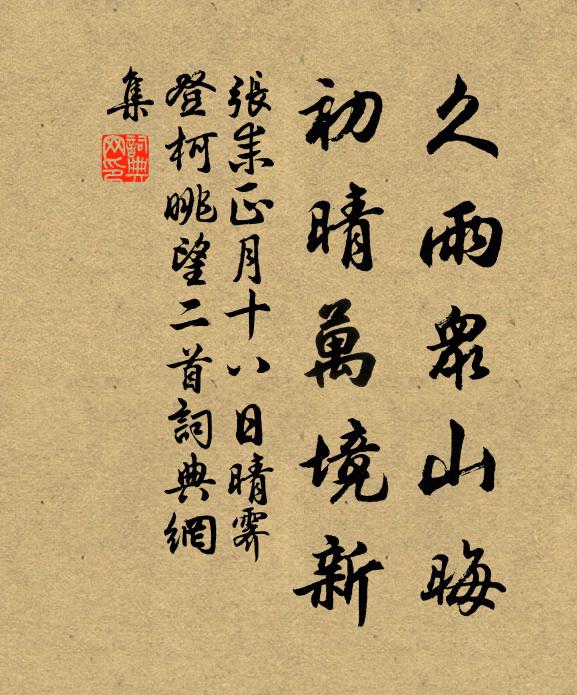 久雨眾山晦
初晴萬境新
張耒正月十八日晴霽
登柯眺望二首詞典網
集
詞典
网印